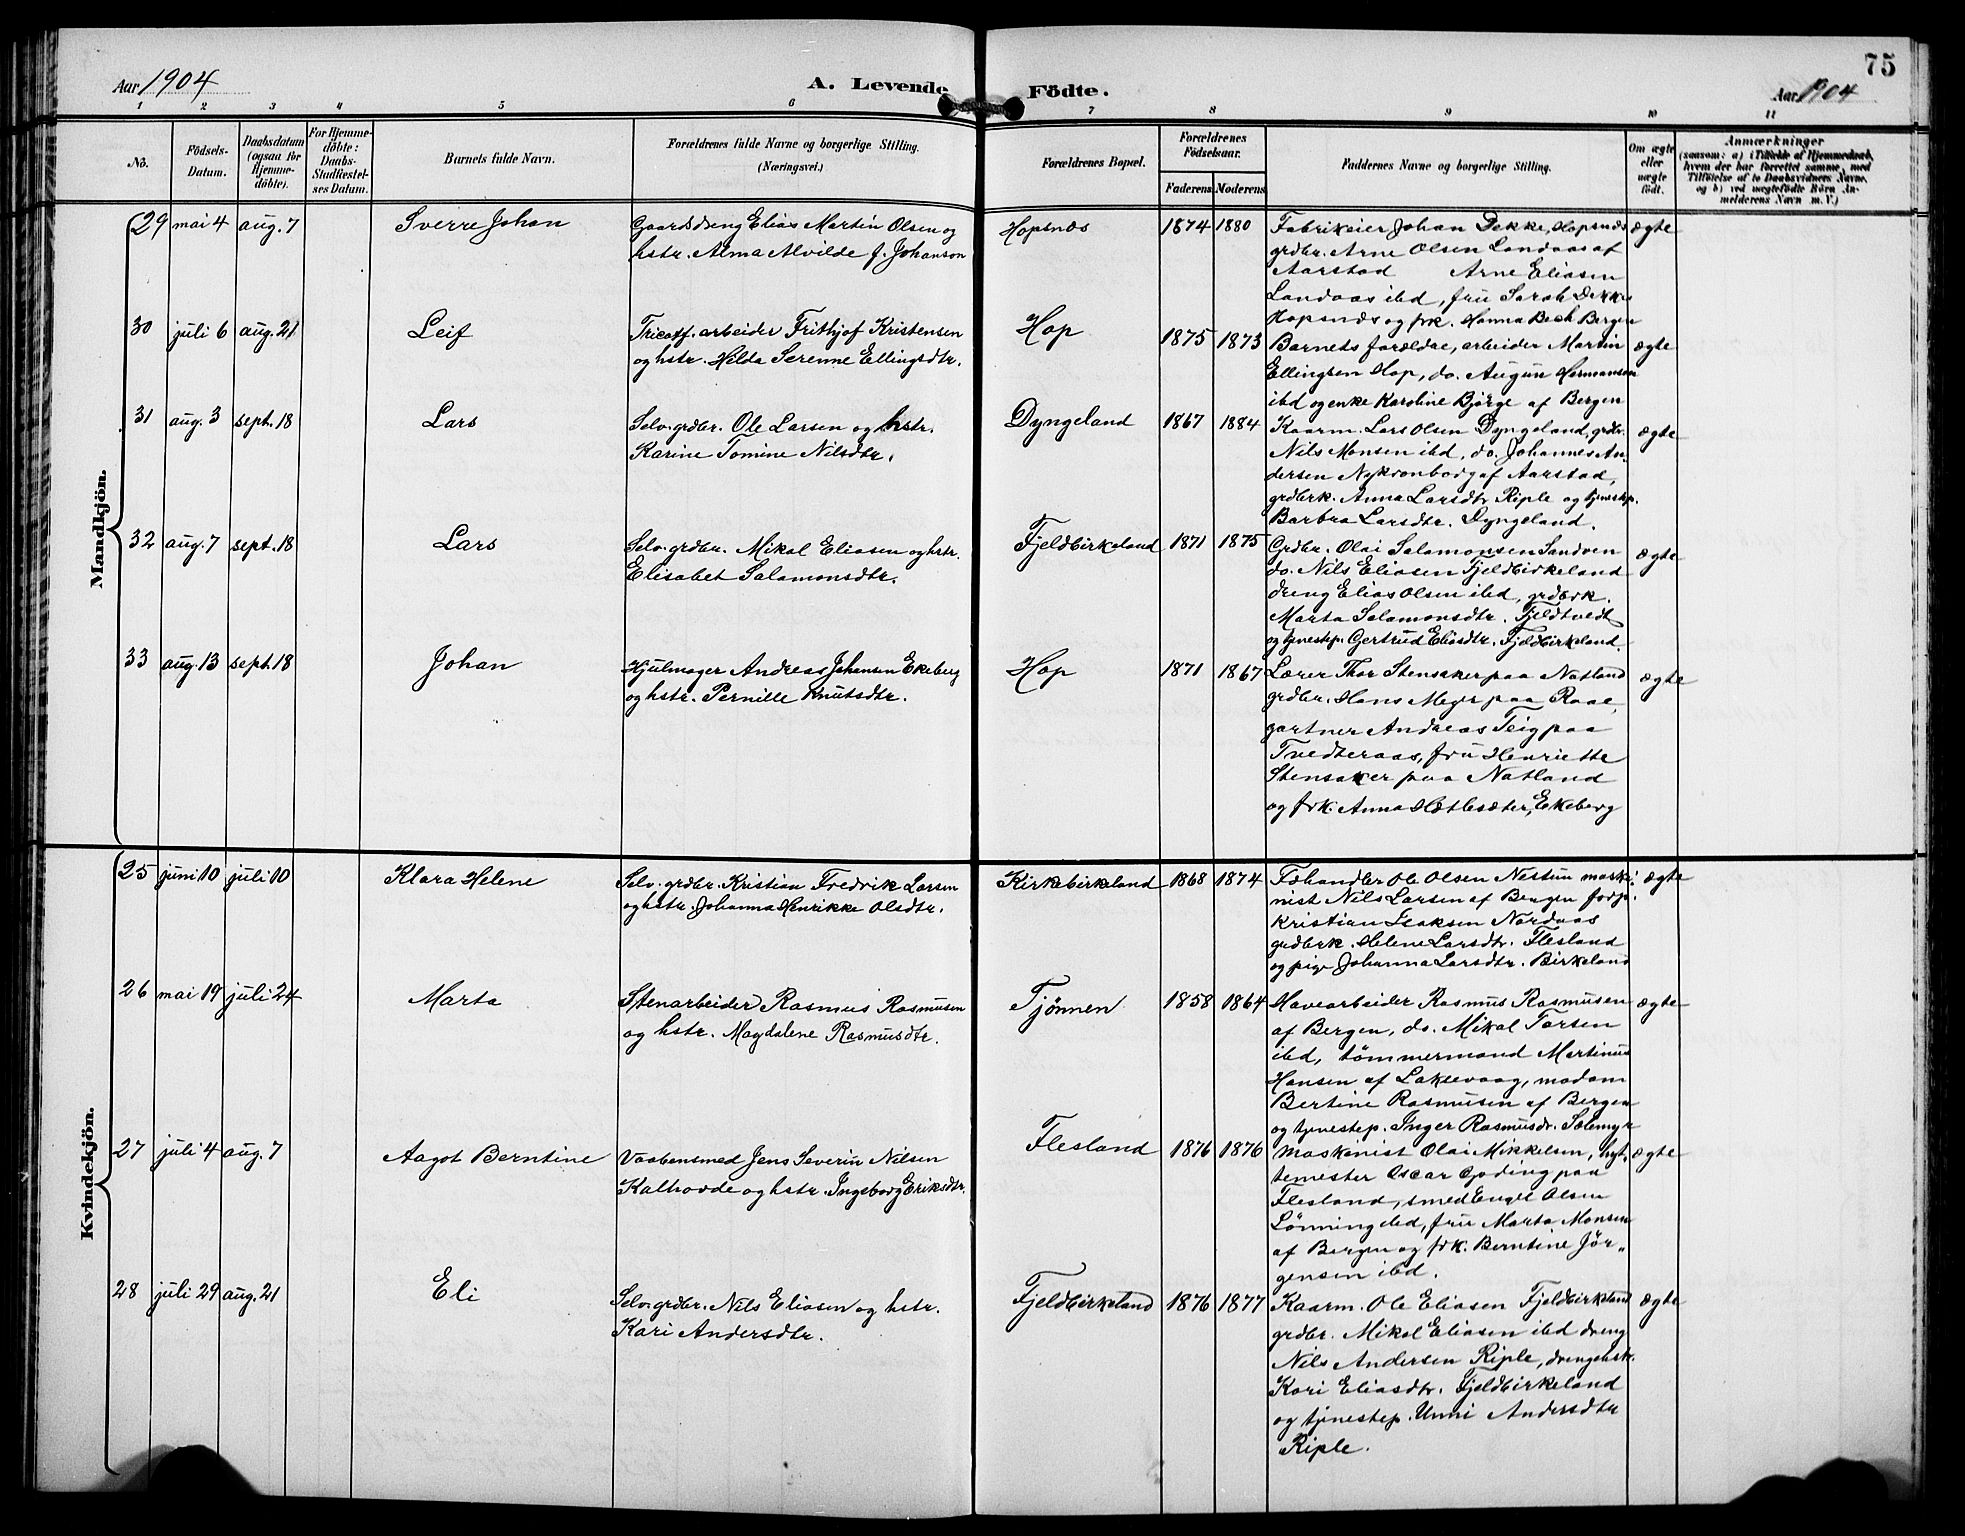 Aar 1904
A. Levende Födte.
75
Aar 1904
1 2 3 4 5 6 7 8 9 10 11
No.
Födsels-Datum.
Daabsdatum (ogsaa for Hjemme-döbte).
For Hjemme-döbte: Daabs-Stadfæstel-ses Datum.
Barnets fulde Navn.
Forældrenes fulde Navne og borgerlige Stilling. (Næringsvei.)
Forældrenes Bopæl.
Forældrenes Födselsaar.
Faderens Moderens
Faddernes Navne og borgerlige Stilling.
Om ægte eller uægte födt.
Anmærkninger
(saasom: a) i Tilfælde af Hjemmedaab,
hvem der har forrettet samme, med
Tilföielse af to Daabsvidners Navne,
og b) ved uægtefödte Börn An-
melderens Navn m. V.)
Mandkjön.
29 mai 4 aug. 7 Sverre Johan
Gaardsdreng Elias Martin Olsen og
hstr. Alma Alvilde f. Johanson
Hopsnæs 1874 1880
Fabrikeier Johan Dekke, Hopsnæs
grdbr. Arne Olsen Landaas af
Aarstad Arne Eliasen
Landaas ibd, fru Sarah Dekke
Hopsnæs og frk. Hanna Bech Bergen
ægte
30 juli 6 aug. 21 Leif
Tricotf. arbeider Frithjof Kristensen
og hstr. Hilda Serenne Ellingsdtr.
Hop 1875 1873
Barnets forældre, arbeider Martin
Ellingsen Hop, do. August Hermansen
ibd og enke Karoline Bjørge af Bergen
ægte
31 aug. 3 sept. 18 Lars
Selv. grdbr. Ole Larsen og hstr.
Karine Tomine Nilsdtr.
Dyngeland 1867 1884
Kaarm. Lars Olsen Dyngeland, grdbr.
Nils Monsen ibd, do. Johannes An-
dersen Nykronborg af Aarstad,
grdbrk. Anna Larsdtr Riple og tjenestep.
Barbra Larsdtr. Dyngeland.
ægte
32 aug. 7 sept. 18 Lars
Selv. grdbr. Mikal Eliasen og hstr.
Elisabet Salamonsdtr.
Fjeldbirkeland 1871 1875
Grdbr. Olai Salamonsen Sandven
do. Nils Eliasen Fjeldbirkeland
dreng Elias Olsen ibd, grdbrk.
Marta Salamonsdtr. Fjeldtvedt
og tjenestep. Gertrud Eliasdtr. Fjeldbirkeland.
ægte
33 aug. 13 sept. 18 Johan
Hjulmager Andreas Johansen Ekeberg
og hstr. Pernille Knutsdtr.
Hop 1871 1867
Lærer Thor Stensaker paa Natland
grdbr. Hans Meyer paa Raae,
gartner Andreas Teig paa
Tvedteraas, fru Henriette
Stensaker paa Natland
og frk. Anna Hætlesæter, Ekeberg
ægte
Kvindekjön.
25 juni 10 juli 10 Klara Helene
Selv. grdbr. Kristian Fredrik Larsen
og hstr. Johanna Henrikke Olsdtr.
Kirkebirkeland 1868 1874
Fæhandler Ole Olsen Nestun maski-
nist Nils Larsen af Bergen forp.
Kristian Isaksen Nordaas
grdbrk. Helene Larsdtr. Flesland
og pige Johanna Larsdtr. Birkeland
ægte
26 mai 19 juli 24 Marta
Stenarbeider Rasmus Rasmusen
og hstr. Magdalene Rasmusdtr.
Tjönnen 1858 1864
Havearbeider Rasmus Rasmusen
af Bergen, do. Mikal Tarsen
ibd, tømmermand Martinus
Hansen af Laksevaag, madam
Bertine Rasmusen af Bergen
og tjenestep. Inger Rasmusdr. Sælemyr
ægte
27 juli 4 aug. 7 Aagot Berntine
Vaabensmed Jens Severin Nilsen
Kalhovde og hstr. Ingeborg Eriksdtr.
Flesland 1876 1876
Maskinist Olai Mikkelsen, byt.
temester Oscar Opding paa
Flesland, smed Engel Olsen
Lønning ibd, fru Marta Monsen
af Bergen og frk. Berntine Jör-
gensen ibd.
ægte
28 juli 29 aug. 21 Eli
Selv. grdbr. Nils Eliasen og hstr.
Kari Andersdtr.
Fjeldbirkeland 1876 1877
Kaarm. Ole Eliasen Fjeldbirkeland
grdbr. Mikal Eliasen ibd dreng
Nils Andersen Riple, drengehstr.
Kari Eliasdtr. Fjeldbirkeland
og tjenestep. Unni Andersdtr
Riple.
ægte